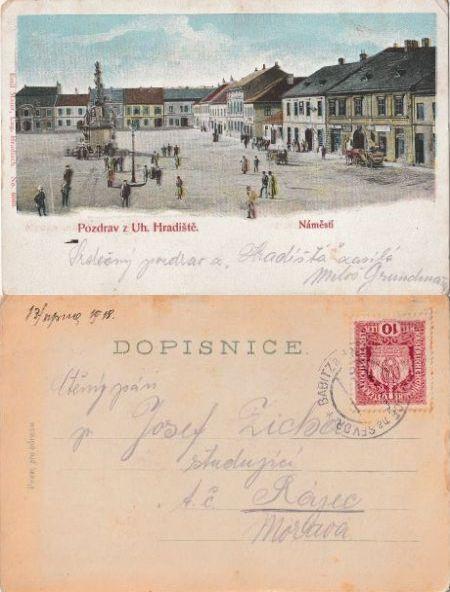 Pozdrav z Uh. Hradiště.
Náměstí
Srdečný pozdrav z Hradiště zasílá
Miloš Grundman
13/srpna 1918.
DOPISNICE.
Ctěný pán
p. Josef Zicha
studující
t. č. Rájec
Morava
Pouze pro adresu
10
BABITZ